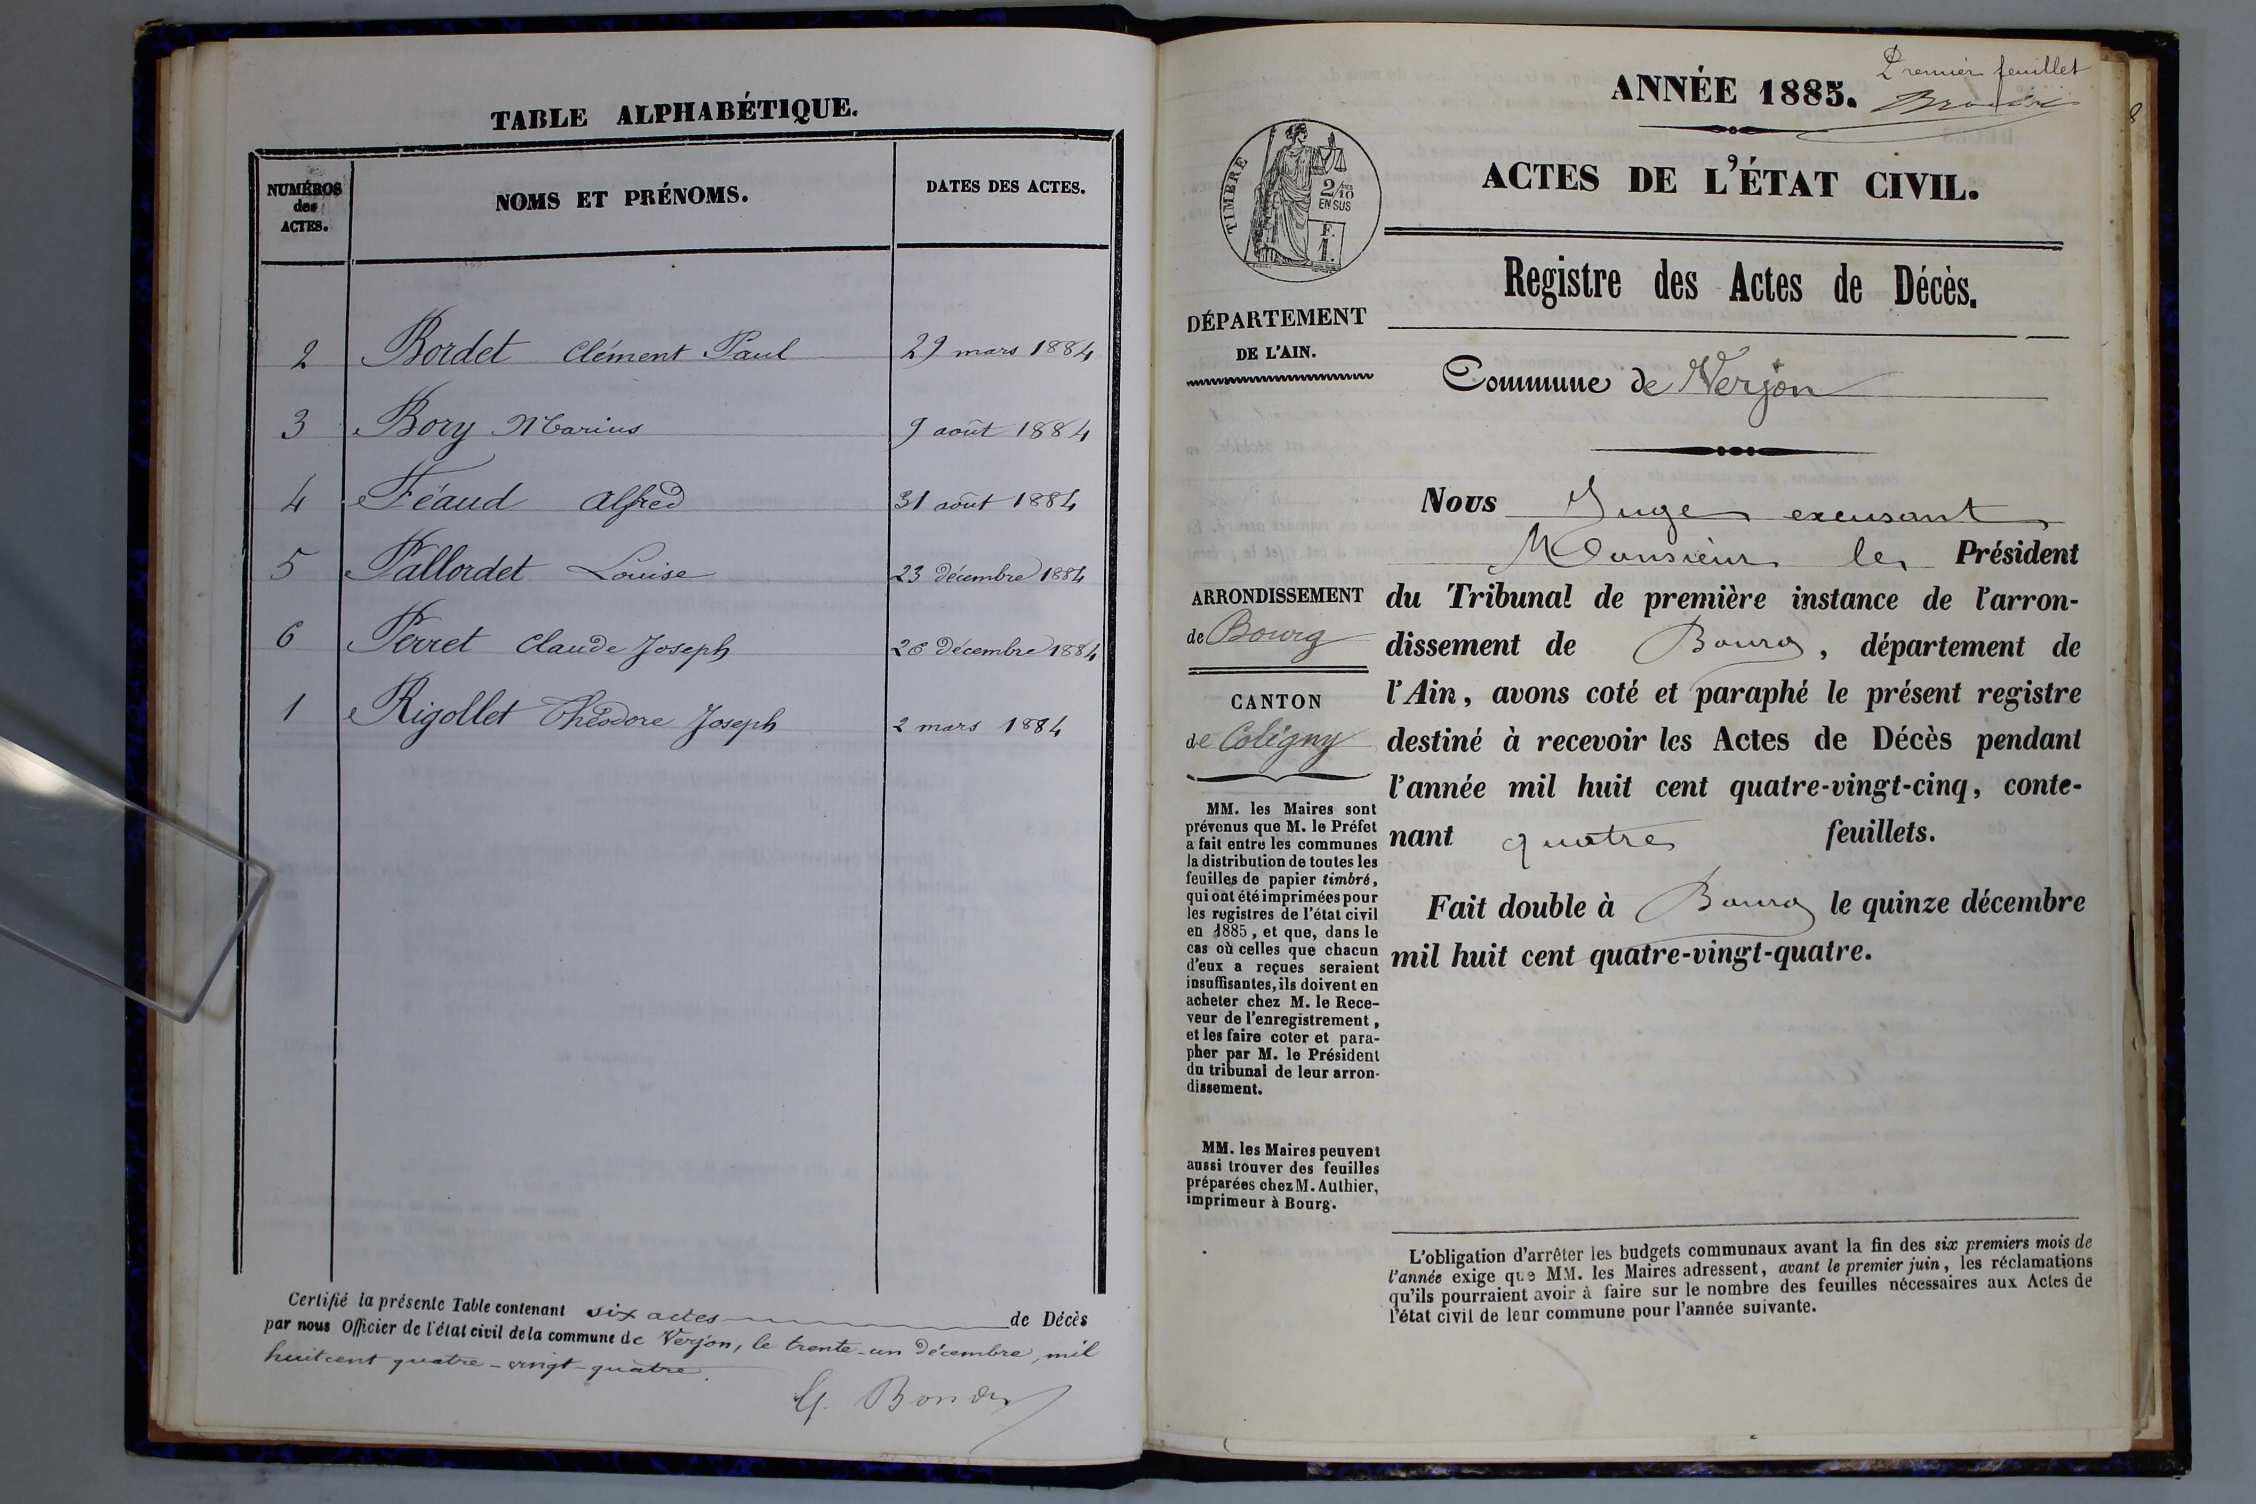 TABLE ALPHABÉTIQUE.
NUMÉROS
des
ACTES.
NOMS ET PRÉNOMS.
DATES DES ACTES.
2 Bordet Clément Paul 29 mars 1884
3 Bory Marius 9 août 1884
4 Féaud Alfred 31 août 1884
5 Pallordet Louise 23 décembre 1884
6 Perret Claude Joseph 26 décembre 1884
1 Rigollet Théodore Joseph 2 mars 1884
Certifié la présente Table contenant six actes de Décès
par nous Officier de l'état civil de la commune de Verjon, le trente-un décembre, mil
huit cent quatre-vingt-quatre.
Premier feuillet
ANNÉE 1885.
ACTES DE L'ÉTAT CIVIL.
TIMBRE
2/10
EN SUS
F.
1.
Registre des Actes de Décès.
DÉPARTEMENT
DE L'AIN.
Commune de Verjon
Nous Juge excusant
Monsieur le Président
du Tribunal de première instance de l'arron-
dissement de Bourg, département de
l'Ain, avons coté et paraphé le présent registre
destiné à recevoir les Actes de Décès pendant
l'année mil huit cent quatre-vingt-cinq, conte-
nant quatre feuillets.
Fait double à Bourg le quinze décembre
mil huit cent quatre-vingt-quatre.
ARRONDISSEMENT
de Bourg
CANTON
de Coligny
MM. les Maires sont
prévenus que M. le Préfet
a fait entre les communes
la distribution de toutes les
feuilles de papier timbré,
qui ont été imprimées pour
les registres de l'état civil
en 1885, et que, dans le
cas où celles que chacun
d'eux a reçues seraient
insuffisantes, ils doivent en
acheter chez M. le Rece-
veur de l'enregistrement,
et les faire coter et para-
pher par M. le Président
du tribunal de leur arron-
dissement.
MM. les Maires peuvent
aussi trouver des feuilles
préparées chez M. Authier,
imprimeur à Bourg.
L'obligation d'arrêter les budgets communaux avant la fin des six premiers mois de
l'année exige que MM. les Maires adressent, avant le premier juin, les réclamations
qu'ils pourraient avoir à faire sur le nombre des feuilles nécessaires aux Actes de
l'état civil de leur commune pour l'année suivante.